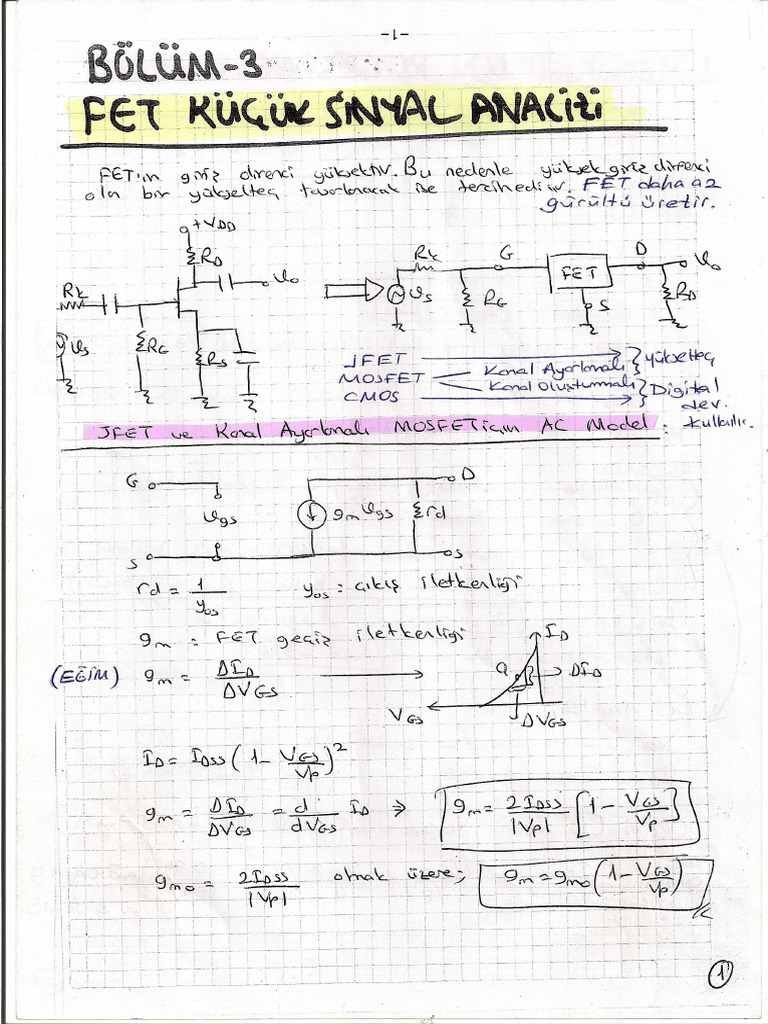 -1-
BÖLÜM-3
FET KÜÇÜK SİNYAL ANALİZİ
FET'in giriş direnci yüksektir. Bu nedenle yüksek giriş direnci
oln bir yükselteç tasarlanacak ise tercihedilir. FET daha az
gürültü üretir.
+VDD
RD
Vo
Rk
RG
RS
Vs
Rk
G
FET
D
Vo
Vs
RG
S
RD
JFET
MOSFET
CMOS
Kanal Ayarlamalı
Kanal Oluşturmalı
yükselteç
Digital
dev.
kullanılır.
JFET ve Kanal Ayarlamalı MOSFET için AC Model:
G
Vgs
S
gmVgs
rd
D
S
rd = 1/yos
yos = çıkış iletkenliği
gm = FET geçiş iletkenliği
(EĞİM) gm = ΔID/ΔVGS
ID
Q
ΔID
VGS
ΔVGS
ID = IDSS(1-VGS/Vp)²
gm = ΔID/ΔVGS = d/dVGS ID ⇒ gm = 2IDSS/|Vp| [1-VGS/Vp]
gmo = 2IDSS/|Vp| olmak üzere; gm = gmo(1-VGS/Vp)
1